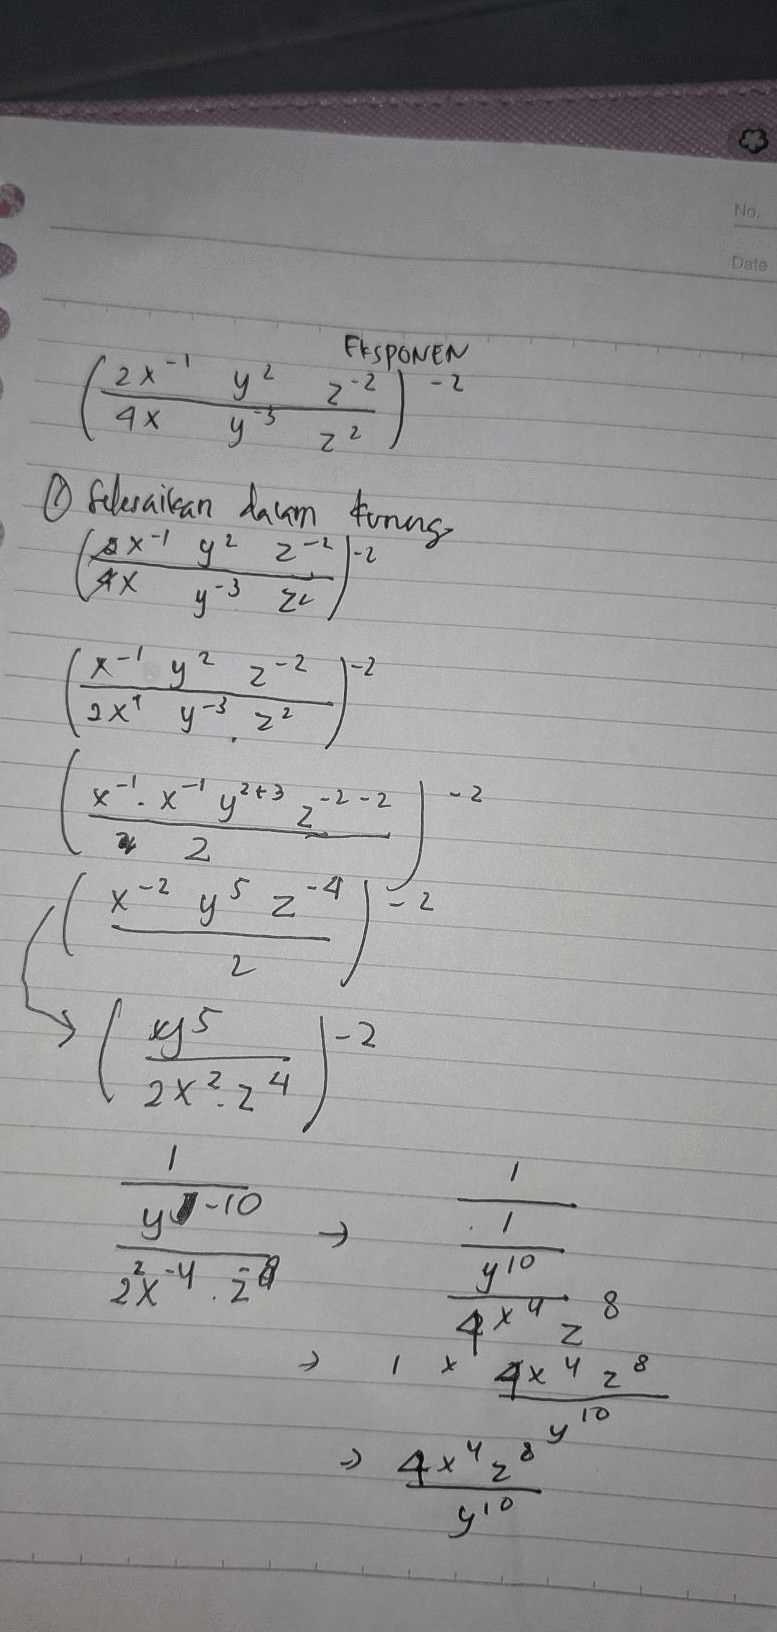 No.
Date
EKSPONEN
(2x⁻¹ y² z⁻² / 4x y⁻³ z²)⁻²
① Selesaikan dalam kurung
(2x⁻¹ y² z⁻² / 4x y⁻³ z²)⁻²
(x⁻¹ y² z⁻² / 2x¹ y⁻³ . z²)⁻²
(x⁻¹ . x⁻¹ y²⁺³ z⁻²⁻² / 2)⁻²
(x⁻² y⁵ z⁻⁴ / 2)⁻²
→ (y⁵ / 2x² . z⁴)⁻²
1 / (y⁻¹⁰ / 2²x⁻⁴ . z⁻⁸) → 1 / ((1 / y¹⁰) / 4x⁴ z⁸)
→ 1 × 4x⁴ z⁸ / y¹⁰
→ 4x⁴ z⁸ / y¹⁰